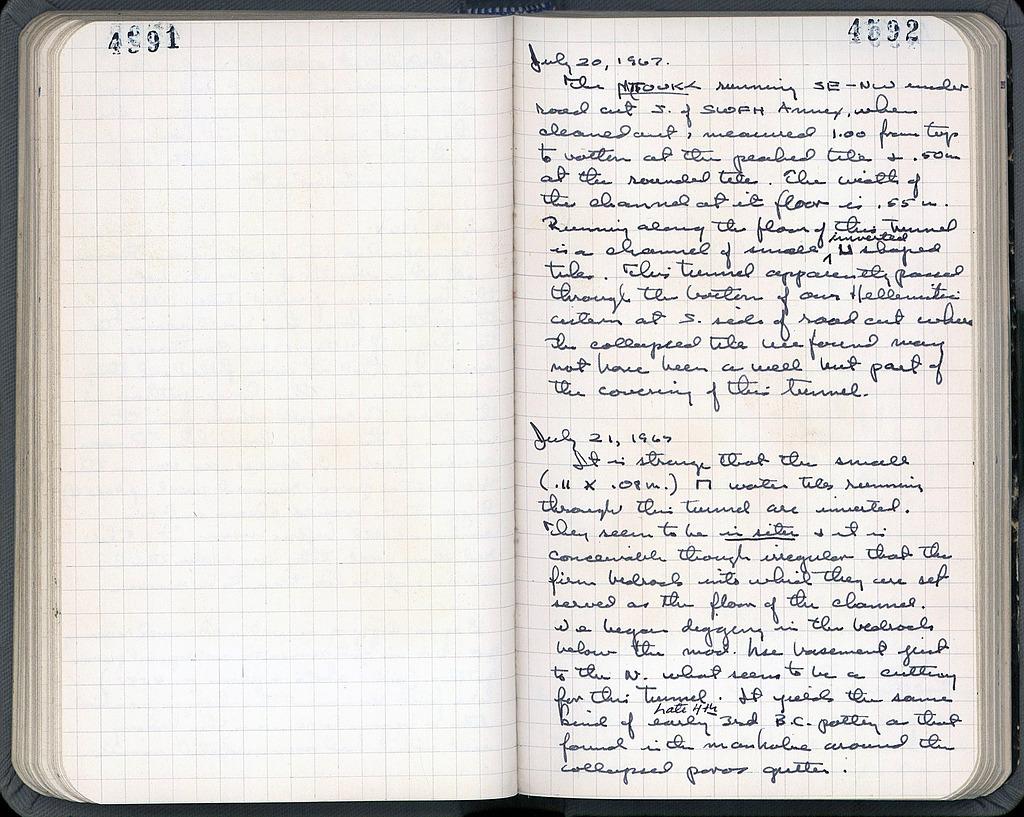 4891
4892
July 20, 1967.
The running SE-NW under
road cut S. of SWFH Annex, when
cleaned out, measured 1.00 from top
to bottom at the peaked tile & .50m
at the rounded tile. The width of
the channel at its floor is .55 m.
Running along the floor of this tunnel
is a channel of small inverted ⊔ shaped
tiles. This tunnel apparently passed
through the bottom of our Hellenistic
cistern at S. side of road cut where
the collapsed tile we found may
not have been a well but part of
the covering of this tunnel.
July 21, 1967
It is strange that the small
(.11 x .08m.) ⊓ water tiles running
through this tunnel are inverted.
They seem to be in situ & it is
conceivable though irregular that the
firm bedrock into which they are set
served as the floor of the channel.
We began digging in the bedrock
below the mod. hse basement just
to the N. what seems to be a cutting
for this tunnel. It yields the same
kind of Late 4th early 3rd B.C. pottery as that
found in the manhole around the
collapsed poros gutter.